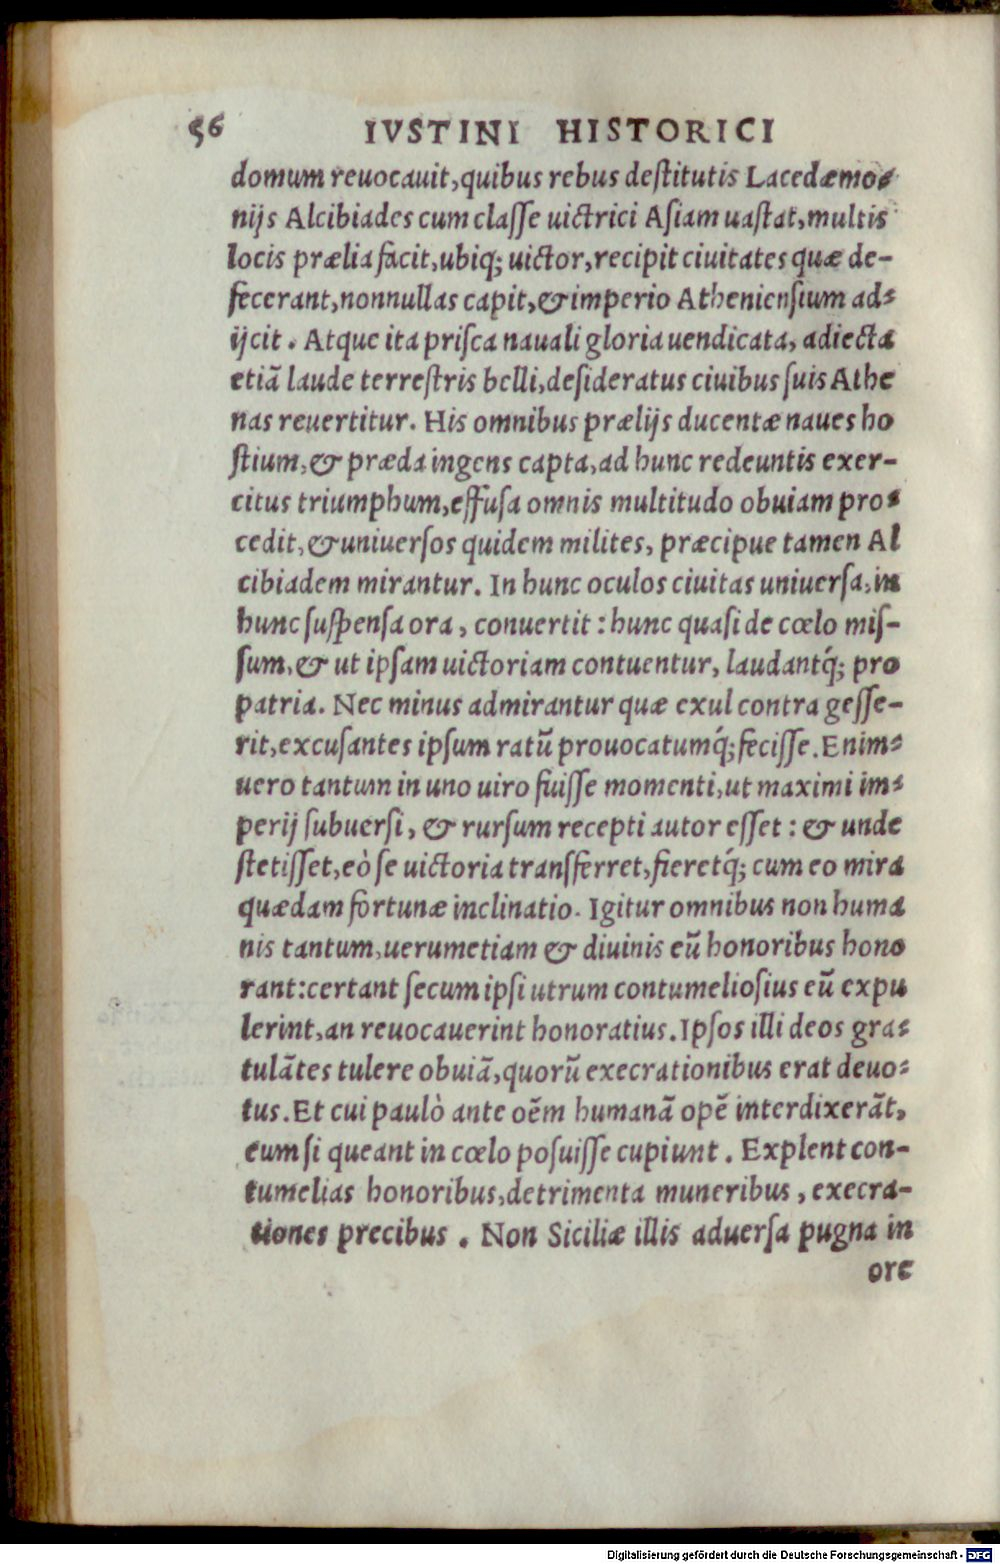 56 IVSTINI HISTORICI
domum reuocauit, quibus rebus deſtitutis Lacedæmo-
nijs Alcibiades cum claſſe uictrici Aſiam uaſtat, multis
locis prælia facit, ubiq; uictor, recipit ciuitates quæ de-
fecerant, nonnullas capit, & imperio Athenienſium ad-
ijcit. Atque ita priſca nauali gloria uendicata, adiecta
etiā laude terreſtris belli, deſideratus ciuibus ſuis Athe
nas reuertitur. His omnibus prælijs ducentæ naues ho
ſtium, & præda ingens capta, ad hunc redeuntis exer-
citus triumphum, effuſa omnis multitudo obuiam pro-
cedit, & uniuerſos quidem milites, præcipue tamen Al
cibiadem mirantur. In hunc oculos ciuitas uniuerſa, in
hunc ſuſpenſa ora, conuertit: hunc quaſi de cœlo miſ-
ſum, & ut ipſam uictoriam contuentur, laudantq́; pro
patria. Nec minus admirantur quæ exul contra geſſe-
rit, excuſantes ipſum ratū prouocatumq́; feciſſe. Enim-
uero tantum in uno uiro fuiſſe momenti, ut maximi im-
perij ſubuerſi, & rurſum recepti autor eſſet: & unde
ſtetiſſet, eò ſe uictoria transferret, fieretq́; cum eo mira
quædam fortunæ inclinatio. Igitur omnibus non huma
nis tantum, uerumetiam & diuinis eū honoribus hono
rant: certant ſecum ipſi utrum contumelioſius eū expu
lerint, an reuocauerint honoratius. Ipſos illi deos gra-
tulātes tulere obuiā, quorū execrationibus erat deuo-
tus. Et cui paulò ante oēm humanā opē interdixerāt,
eum ſi queant in cœlo poſuiſſe cupiunt. Explent con-
tumelias honoribus, detrimenta muneribus, execra-
tiones precibus. Non Siciliæ illis aduerſa pugna in
ore
Digitalisierung gefördert durch die Deutsche Forschungsgemeinschaft - DFG